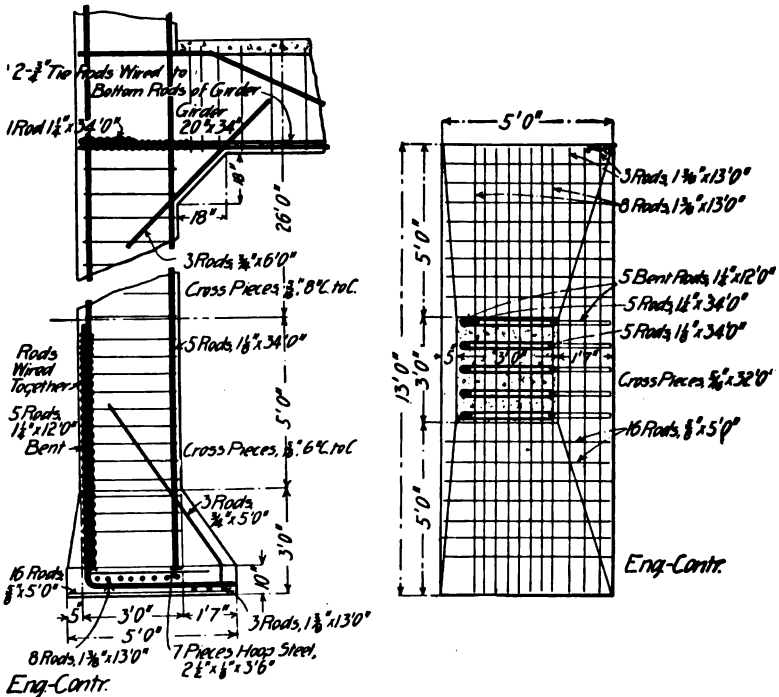 2-¾" Tie Rods Wired to
Bottom Rods of Girder
Girder
20"x34"
1 Rod 1¼"x34'0"
18"
18"
26'0"
3 Rods, ¾"x6'0"
Cross Pieces, 8"C. to C.
Rods
Wired
Together
5 Rods,
1¼"x12'0"
Bent
5 Rods, 1⅛"x34'0"
5'0"
Cross Pieces, 6"C. to C.
3 Rods,
¾"x5'0"
3'0"
10"
16 Rods,
⅝"x5'0"
5"
3'0"
1'7"
5'0"
3 Rods, 1⅜"x13'0"
8 Rods, 1⅜"x13'0"
7 Pieces Hoop Steel,
2½"x⅛"x3'6"
Eng-Contr.
5'0"
3 Rods, 1⅜"x13'0"
8 Rods, 1⅜"x13'0"
5'0"
5 Bent Rods, 1¼"x12'0"
5 Rods, 1¼"x34'0"
5 Rods, 1⅛"x34'0"
5"
3'0"
1'7"
13'0"
3'0"
Cross Pieces, 5/16"x32'0"
16 Rods, ⅝"x5'0"
5'0"
Eng-Contr.